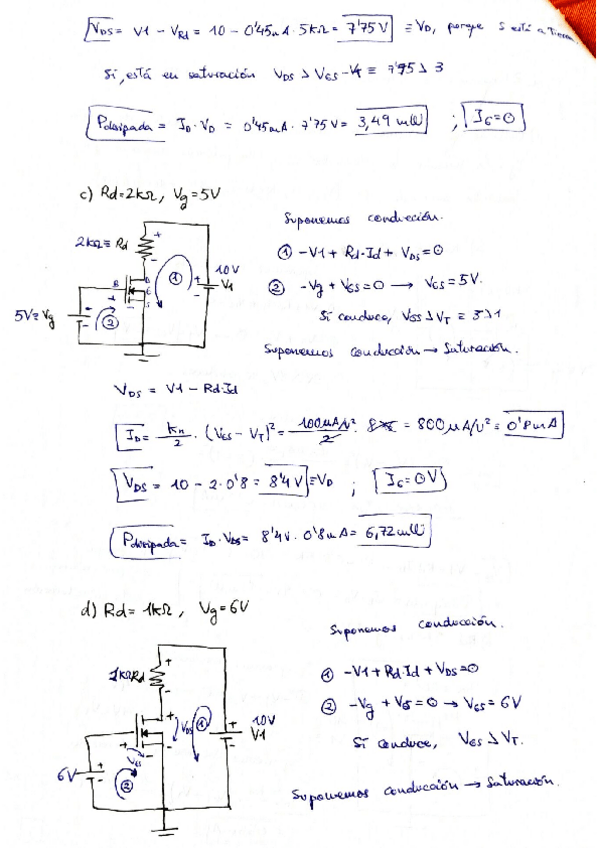 VDS = V1 - VRd = 10 - 0'45mA · 5kΩ = 7'75V ≡ VD, porque S está a tierra.
Sí, está en saturación VDS > VGS - VT ≡ 7'75 > 3
Pdisipada = ID · VD = 0'45mA · 7'75V = 3,49 mW ; IG = 0
c) Rd = 2kΩ, Vg = 5V
Suponemos conducción.
① -V1 + Rd·Id + VDS = 0
② -Vg + VGS = 0 → VGS = 5V.
Sí conduce, VGS > VT
Suponemos conducción → Saturación.
2kΩ ≡ Rd
+
-
①
10V
V1
D
G
S
5V ≡ Vg
②
VDS = V1 - Rd·Id
ID = kn/2 · (VGS - VT)² = 100μA/V²/2 · = 800μA/V² = 0'8mA
VDS = 10 - 2·0'8 = 8'4V ≡ VD ; IG = 0V
Pdisipada = ID · VDS = 8'4V · 0'8mA = 6,72mW
d) Rd = 1kΩ, Vg = 6V
Suponemos conducción.
① -V1 + Rd·Id + VDS = 0
② -Vg + VGS = 0 → VGS = 6V
Sí conduce, VGS > VT.
Suponemos conducción → Saturación.
1kΩ Rd
+
-
VDS
①
10V
V1
VGS
6V
②